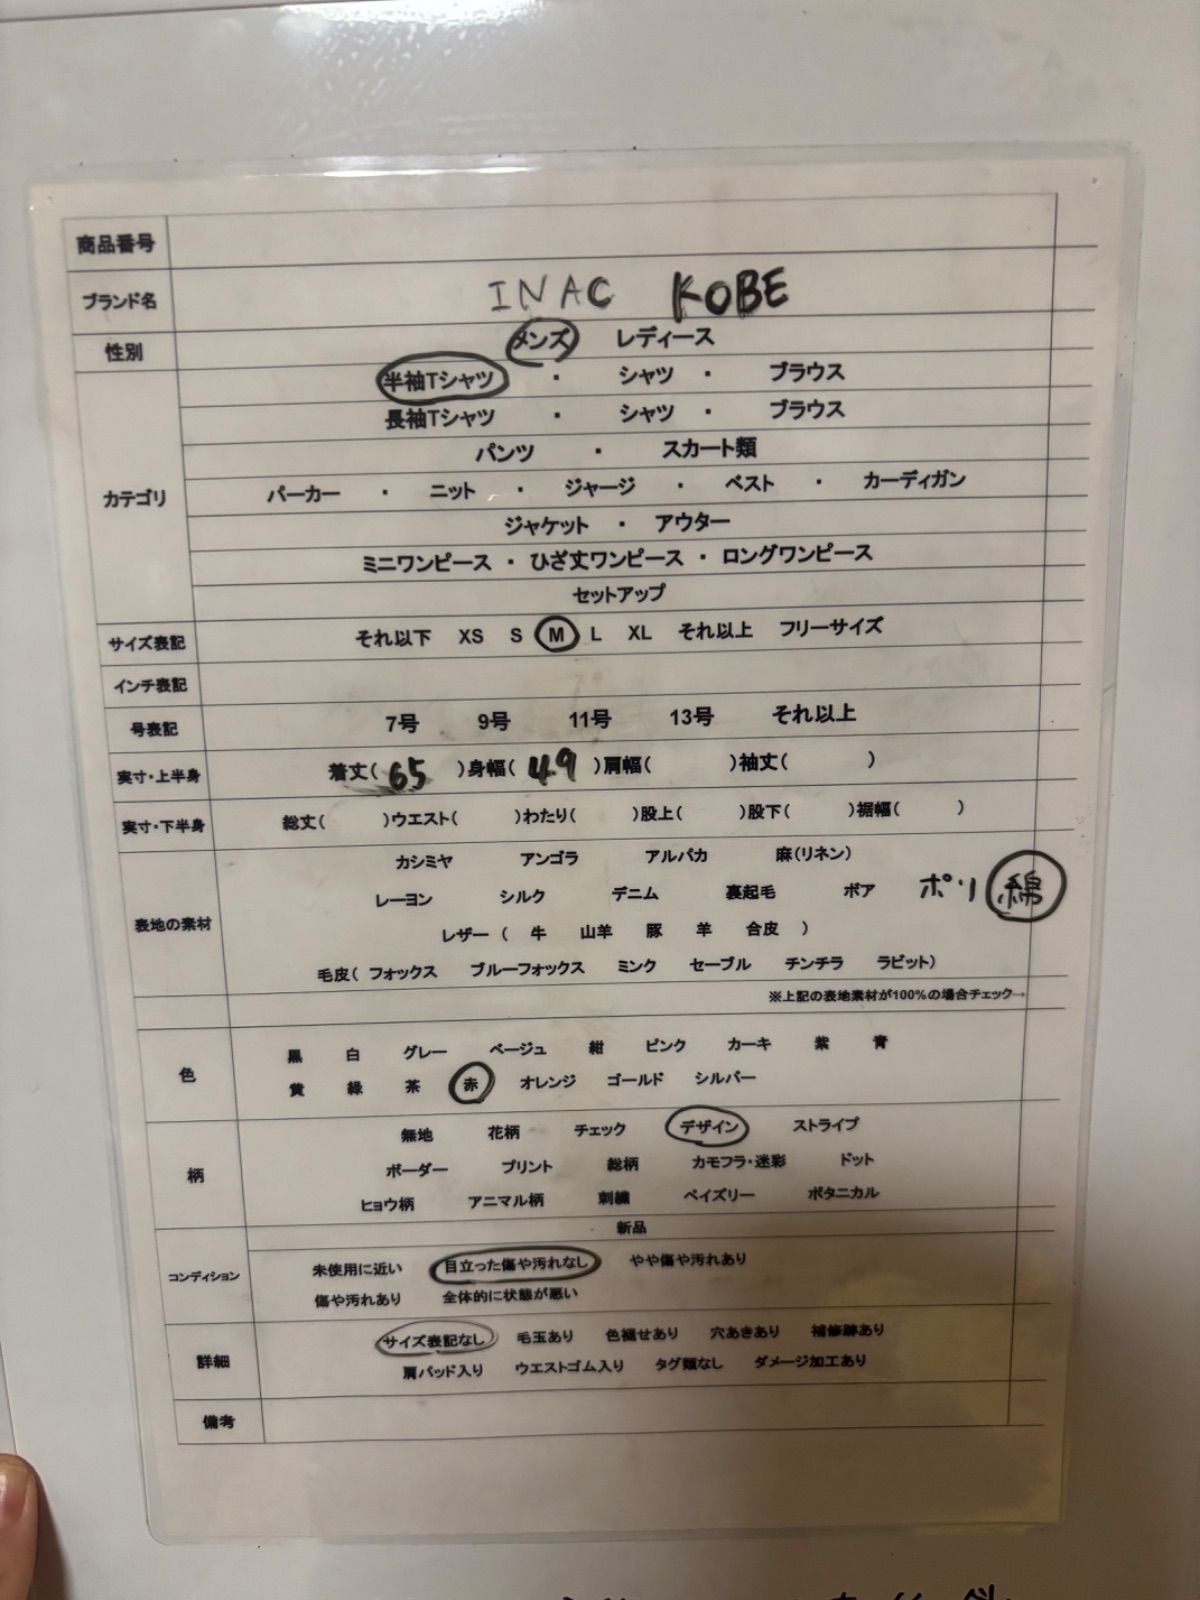 商品番号
ブランド名 INAC KOBE
性別 メンズ レディース
カテゴリ
半袖Tシャツ ・ シャツ ・ ブラウス
長袖Tシャツ ・ シャツ ・ ブラウス
パンツ ・ スカート類
パーカー ・ ニット ・ ジャージ ・ ベスト ・ カーディガン
ジャケット ・ アウター
ミニワンピース ・ ひざ丈ワンピース ・ ロングワンピース
セットアップ
サイズ表記 それ以下 XS S M L XL それ以上 フリーサイズ
インチ表記
号表記 7号 9号 11号 13号 それ以上
実寸・上半身 着丈( 65 )身幅( 49 )肩幅( )袖丈( )
実寸・下半身 総丈( )ウエスト( )わたり( )股上( )股下( )裾幅( )
表地の素材
カシミヤ アンゴラ アルパカ 麻(リネン)
レーヨン シルク デニム 裏起毛 ボア ポリ 綿
レザー ( 牛 山羊 豚 羊 合皮 )
毛皮( フォックス ブルーフォックス ミンク セーブル チンチラ ラビット)
※上記の表地素材が100%の場合チェック→
色
黒 白 グレー ベージュ 紺 ピンク カーキ 紫 青
黄 緑 茶 赤 オレンジ ゴールド シルバー
柄
無地 花柄 チェック デザイン ストライプ
ボーダー プリント 総柄 カモフラ・迷彩 ドット
ヒョウ柄 アニマル柄 刺繍 ペイズリー ボタニカル
コンディション
新品
未使用に近い 目立った傷や汚れなし やや傷や汚れあり
傷や汚れあり 全体的に状態が悪い
詳細
サイズ表記なし 毛玉あり 色褪せあり 穴あきあり 補修跡あり
肩パッド入り ウエストゴム入り タグ類なし ダメージ加工あり
備考